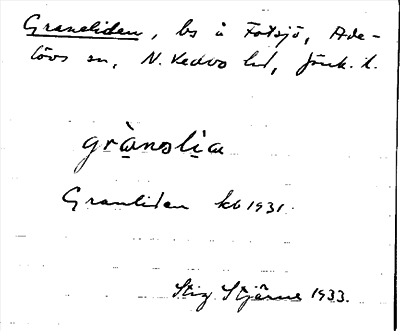 Graneliden, bs u Fotsjö, Ade-
lövs sn, N. Vedbo hd, Jönk. l.
grànəlia
Granliden kb 1931.
Stig Stjärne 1933.